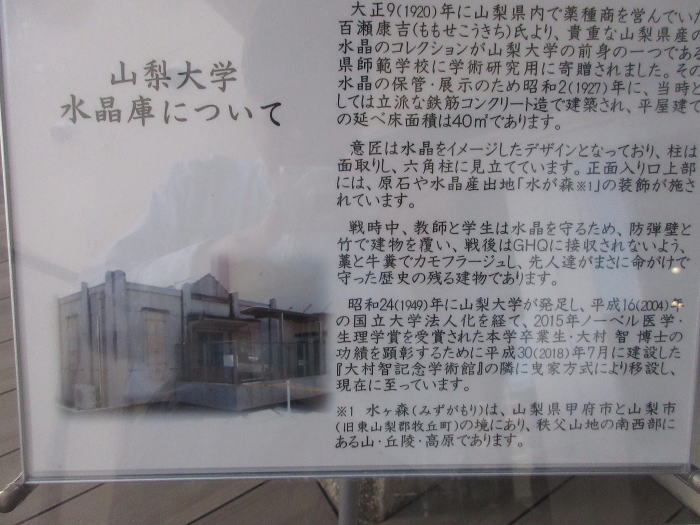 山梨大学
水晶庫について
大正9(1920)年に山梨県内で薬種商を営んでい
百瀬康吉(ももせこうきち)氏より、貴重な山梨県産の
水晶のコレクションが山梨大学の前身の一つである
県師範学校に学術研究用に寄贈されました。その
水晶の保管・展示のため昭和2(1927)年に、当時と
しては立派な鉄筋コンクリート造で建築され、平屋建て
の延べ床面積は40㎡であります。
意匠は水晶をイメージしたデザインとなっており、柱は
面取りし、六角柱に見立てています。正面入り口上部
には、原石や水晶産出地「水が森※1」の装飾が施さ
れています。
戦時中、教師と学生は水晶を守るため、防弾壁と
竹で建物を覆い、戦後はGHQに接収されないよう、
藁と牛糞でカモフラージュし、先人達がまさに命がけで
守った歴史の残る建物であります。
昭和24(1949)年に山梨大学が発足し、平成16(2004)年
の国立大学法人化を経て、2015年ノーベル医学・
生理学賞を受賞された本学卒業生・大村 智 博士の
功績を顕彰するために平成30(2018)年7月に建設した
『大村智記念学術館』の隣に曳家方式により移設し、
現在に至っています。
※1 水ヶ森(みずがもり)は、山梨県甲府市と山梨市
(旧東山梨郡牧丘町)の境にあり、秩父山地の南西部に
ある山・丘陵・高原であります。